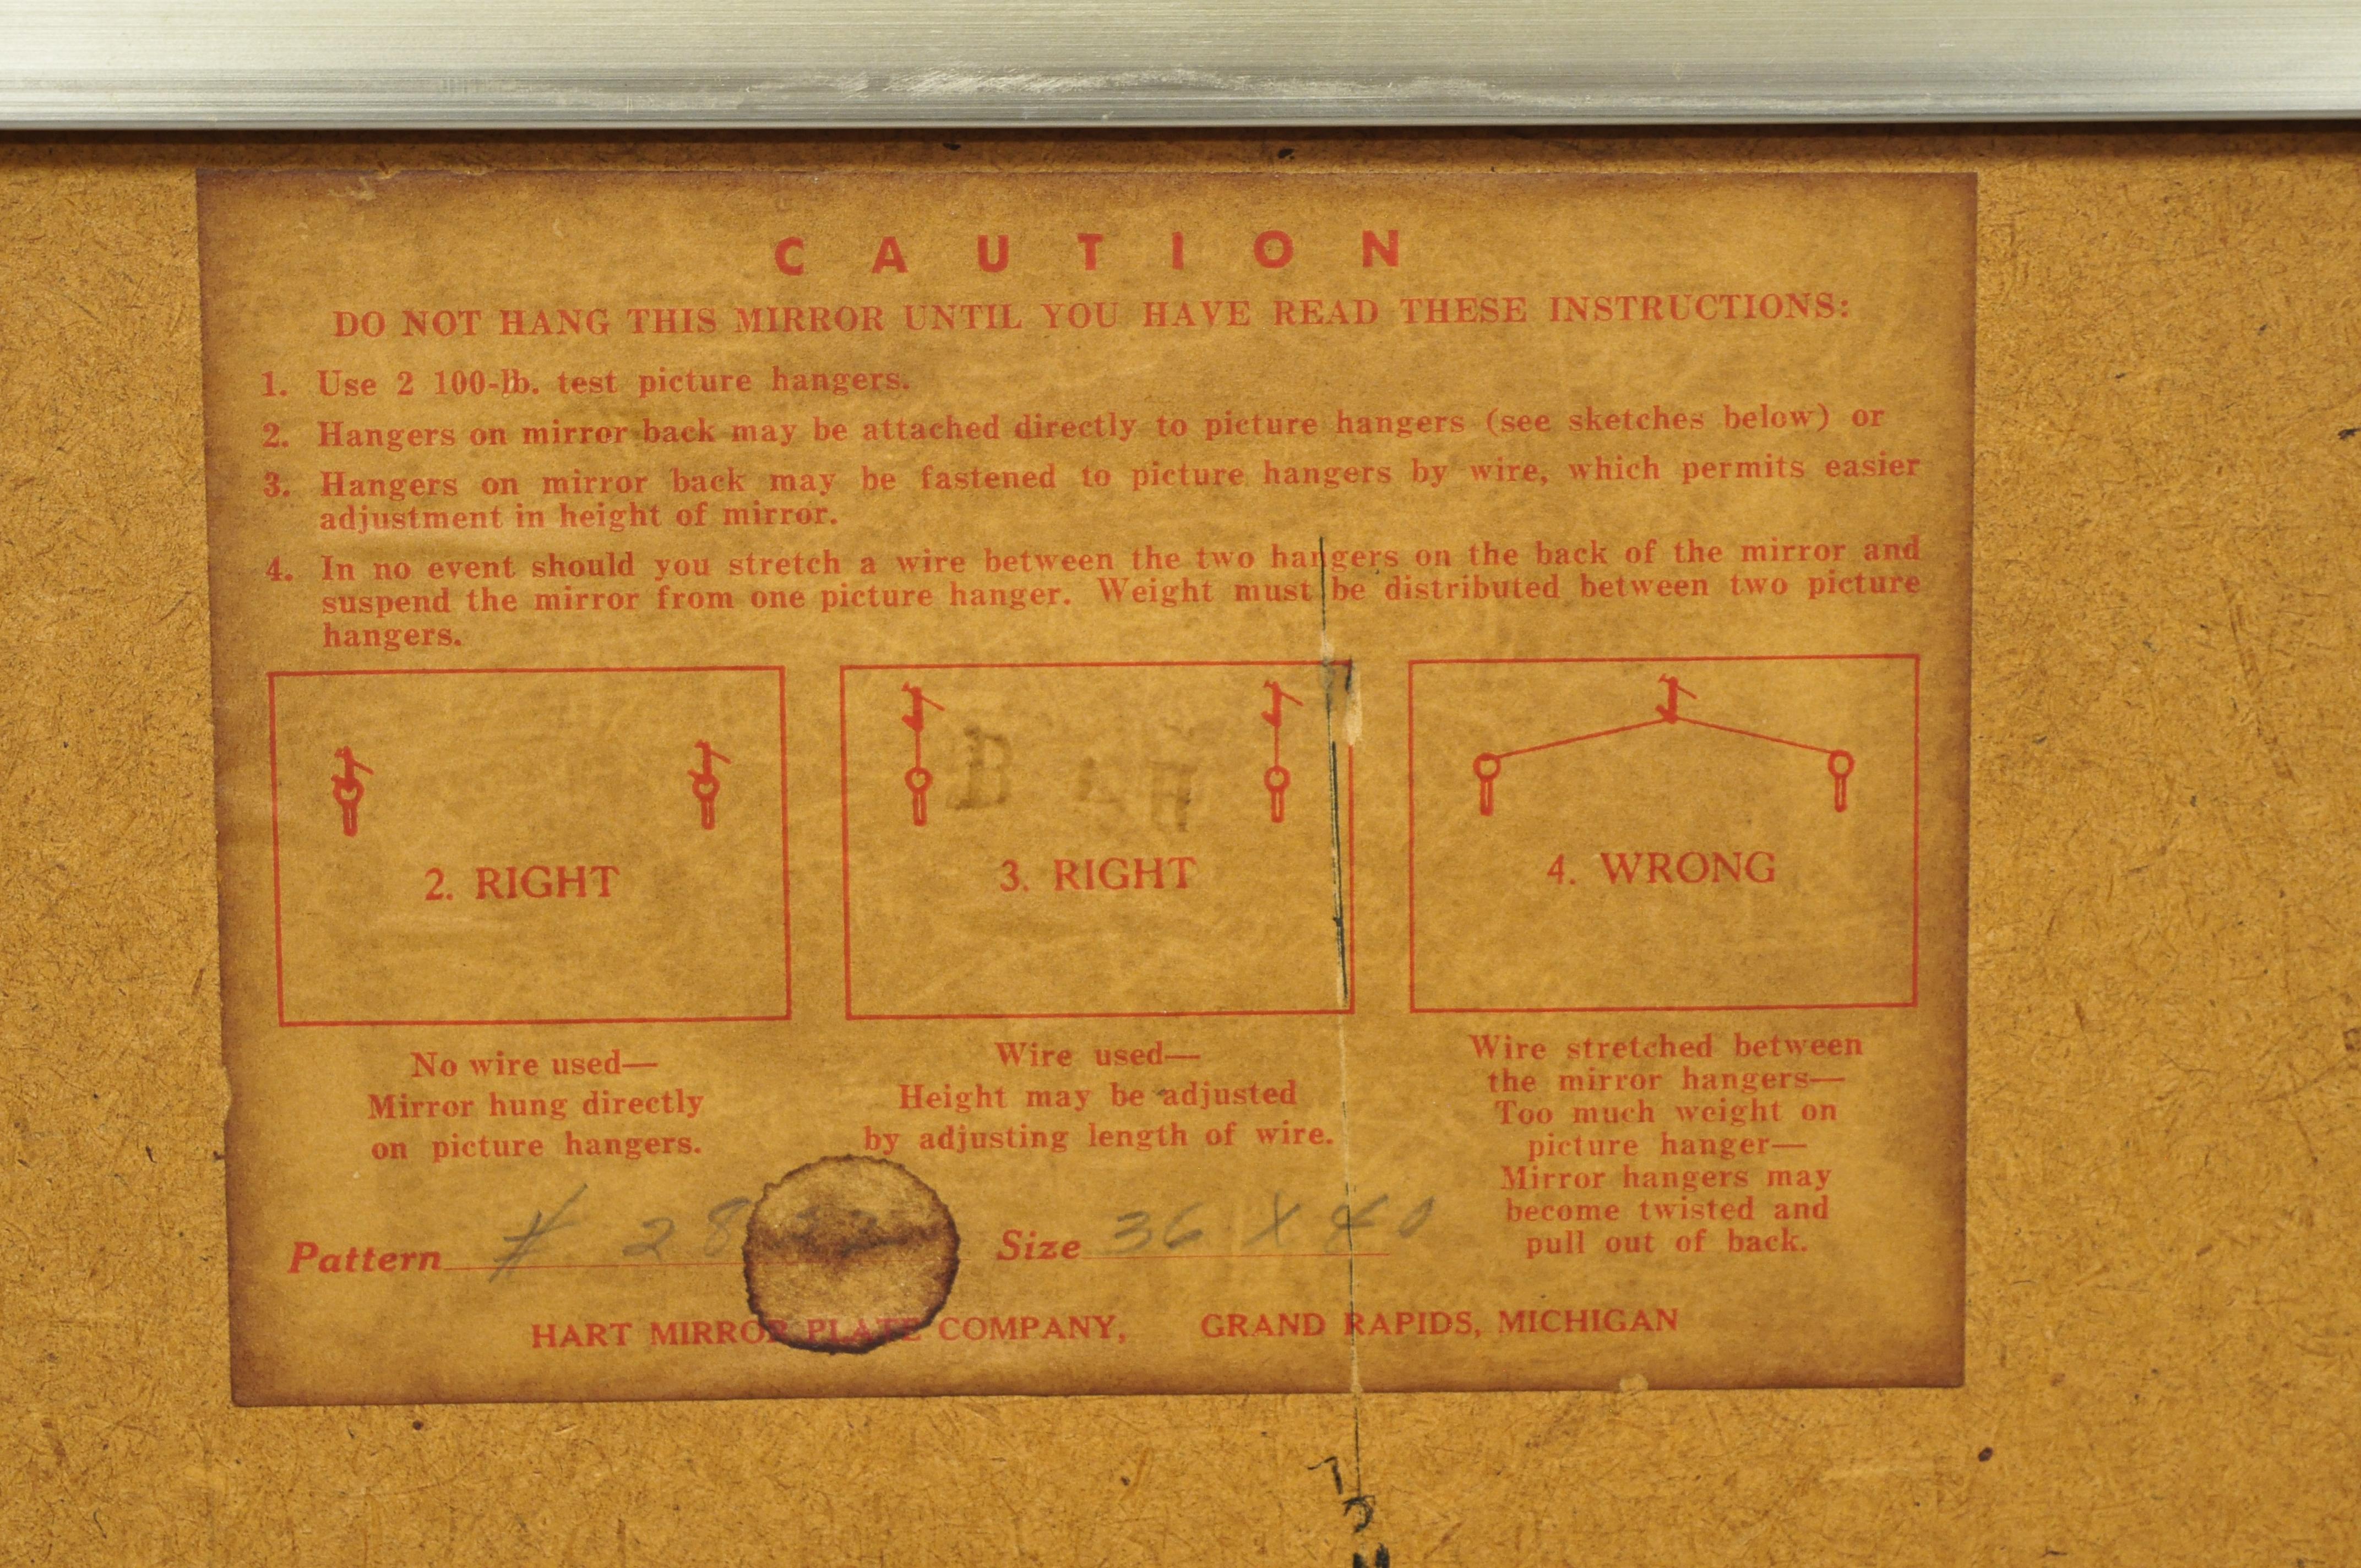 CAUTION
DO NOT HANG THIS MIRROR UNTIL YOU HAVE READ THESE INSTRUCTIONS:
1. Use 2 100-lb. test picture hangers.
2. Hangers on mirror back may be attached directly to picture hangers (see sketches below) or
3. Hangers on mirror back may be fastened to picture hangers by wire, which permits easier
adjustment in height of mirror.
4. In no event should you stretch a wire between the two hangers on the back of the mirror and
suspend the mirror from one picture hanger. Weight must be distributed between two picture
hangers.
2. RIGHT
No wire used—
Mirror hung directly
on picture hangers.
3. RIGHT
Wire used—
Height may be adjusted
by adjusting length of wire.
4. WRONG
Wire stretched between
the mirror hangers—
Too much weight on
picture hanger—
Mirror hangers may
become twisted and
pull out of back.
Pattern #
Size 36 X 40
HART MIRROR PLATE COMPANY, GRAND RAPIDS, MICHIGAN